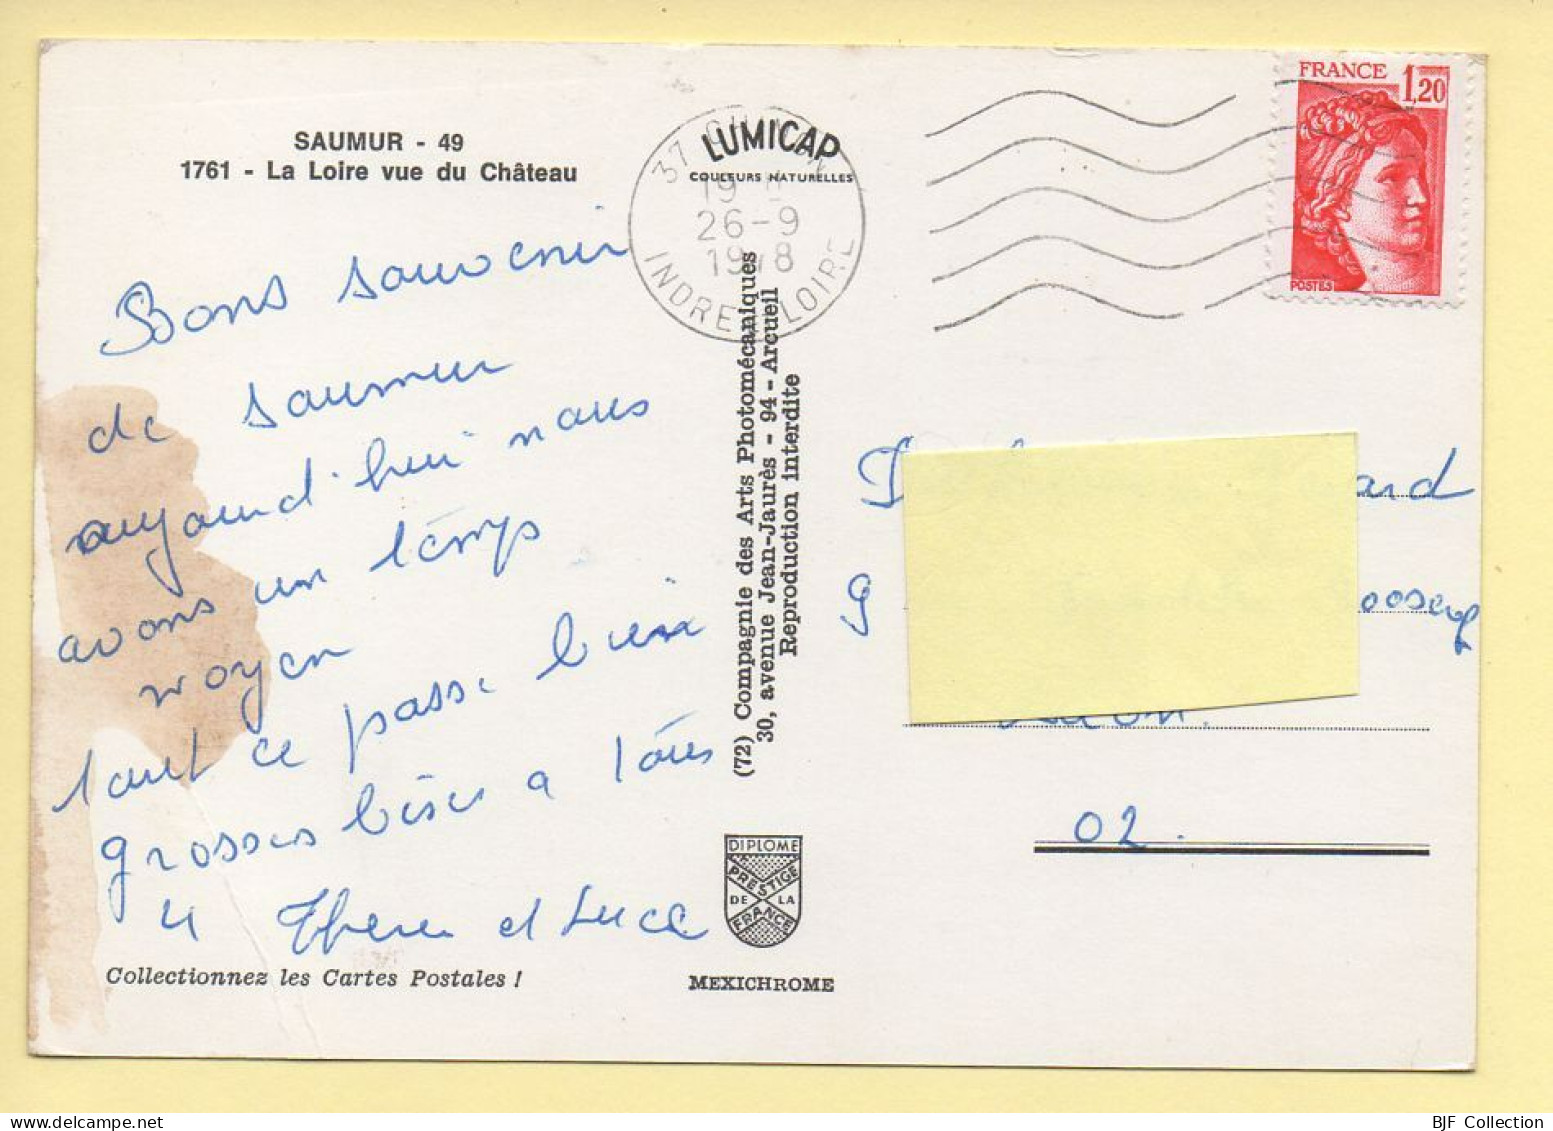 SAUMUR - 49
1761 - La Loire vue du Château
LUMICAP
COULEURS NATURELLES
37
19
26-9
1978
INDRE LOIRE
FRANCE 1,20
POSTES
Bons souvenir
de saumur
aujourd'hui nous
avons un temps
moyen
tout ce passe bien
grosses bises a tous
4 et Luce
(72) Compagnie des Arts Photomécaniques
30, avenue Jean-Jaurès - 94 - Arcueil
Reproduction interdite
ard
9
02.
DIPLOME
PRESTIGE
DE LA
FRANCE
Collectionnez les Cartes Postales !
MEXICHROME
BJF Collection